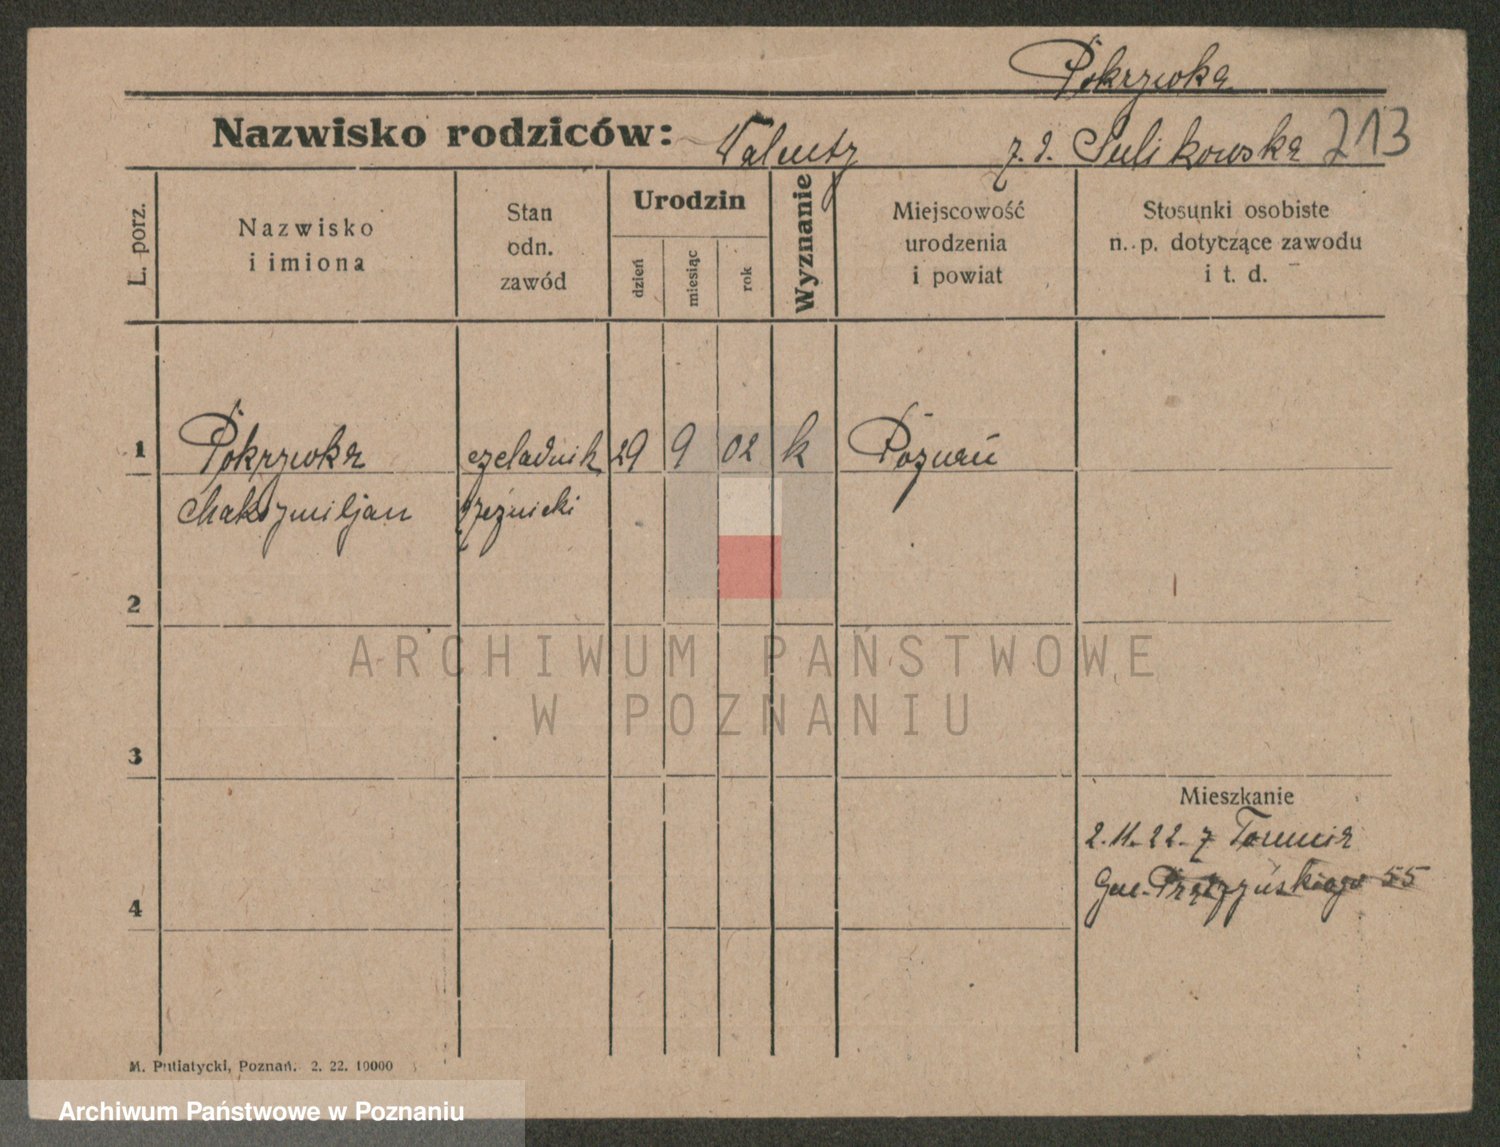 Pokrzywka
Nazwisko rodziców: Walenty z d. Sulikowska 213
L. porz.
Nazwisko
i imiona
Stan
odn.
zawód
Urodzin
dzień
miesiąc
rok
Wyznanie
Miejscowość
urodzenia
i powiat
Stosunki osobiste
n. p. dotyczące zawodu
i t. d.
1 Pokrzywka czeladnik 29 9 02 k Poznań
Maksymiljan rzeźnicki
2
ARCHIWUM PAŃSTWOWE
W POZNANIU
3
Mieszkanie
2.11.22 z Torunia
Prądzyńskiego 55
4
M. Putiatycki, Poznań. 2. 22. 10000
Archiwum Państwowe w Poznaniu